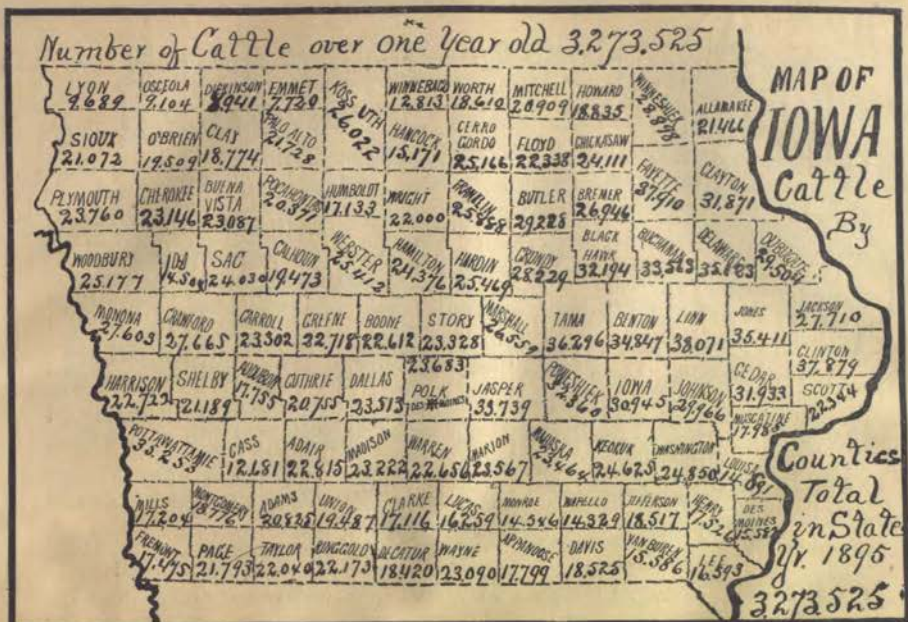 Number of Cattle over one Year old 3,273,525
MAP OF
IOWA
Cattle
By
Counties
Total
in State
Yr. 1895
3,273,525
LYON
9.689
OSCEOLA
9.104
DICKINSON
8941
EMMET
7.720
KOSSUTH
26.022
WINNEBAGO
12.813
WORTH
18.610
MITCHELL
20.909
HOWARD
18.835
WINNESHIEK
28.898
ALLAMAKEE
21.466
SIOUX
21.072
O'BRIEN
19.509
CLAY
18.774
PALO ALTO
21.728
HANCOCK
15,171
CERRO
GORDO
25,166
FLOYD
22338
CHICKASAW
24.111
FAYETTE
37,910
CLAYTON
31,871
PLYMOUTH
23.760
CHEROKEE
23.146
BUENA
VISTA
23.087
POCAHONTAS
20.377
HUMBOLDT
17.133
WRIGHT
22.000
FRANKLIN
25.888
BUTLER
29228
BREMER
26.946
WOODBURY
25.177
IDA
SAC
24.030
CALHOUN
19.473
WEBSTER
25.412
HAMILTON
24,376
HARDIN
25.469
GRUNDY
28.229
BLACK
HAWK
32.194
BUCHANAN
33,563
DELAWARE
DUBUQUE
29.504
MONONA
27.603
CRAWFORD
27.665
CARROLL
23.302
GREENE
22.718
BOONE
22.612
STORY
23.328
MARSHALL
26.559
TAMA
36.296
BENTON
34,847
LINN
38.071
JONES
35.411
JACKSON
27.710
CLINTON
37.879
HARRISON
22.722
SHELBY
21.189
AUDUBON
17.755
GUTHRIE
20.755
DALLAS
23.513
23.683
POLK
DES MOINES
JASPER
33,739
POWESHIEK
IOWA
30.945
JOHNSON
29,966
CEDAR
31.933
SCOTT
22.344
MUSCATINE
17.988
POTTAWATTAMIE
33.253
CASS
12.181
ADAIR
22.815
MADISON
23.222
WARREN
22.656
MARION
23.567
MAHASKA
KEOKUK
24.625
WASHINGTON
24.850
LOUISA
14.891
MILLS
17.204
MONTGOMERY
18.776
ADAMS
20.825
UNION
19.487
CLARKE
17.116
LUCAS
16.259
MONROE
14.546
WAPELLO
14.329
JEFFERSON
18.517
HENRY
17.526
DES
MOINES
15.582
FREMONT
17.475
PAGE
21.793
TAYLOR
22.040
RINGGOLD
22.173
DECATUR
18.420
WAYNE
23.090
APPANOOSE
17.799
DAVIS
18.525
VAN BUREN
15.586
LEE
16.593